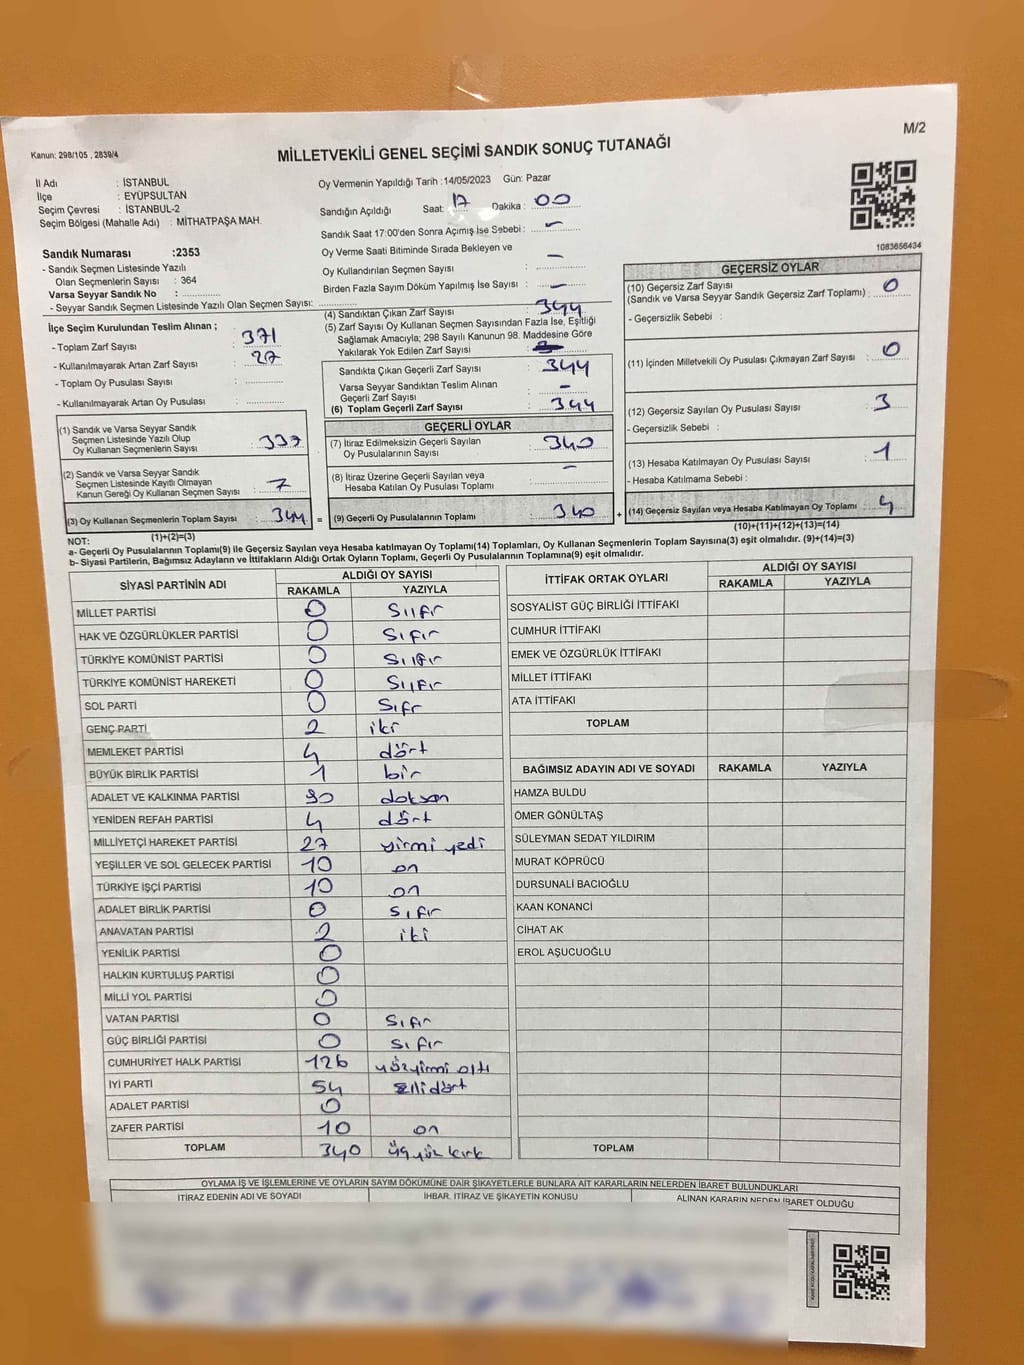 M/2
Kanun: 298/105 , 2839/4
MİLLETVEKİLİ GENEL SEÇİMİ SANDIK SONUÇ TUTANAĞI
İl Adı : İSTANBUL
İlçe : EYÜPSULTAN
Seçim Çevresi : İSTANBUL-2
Seçim Bölgesi (Mahalle Adı) : MİTHATPAŞA MAH.
Oy Vermenin Yapıldığı Tarih :14/05/2023 Gün: Pazar
Sandığın Açıldığı Saat: 17 Dakika : 00
Sandık Saat 17:00'den Sonra Açımış İse Sebebi : -
Oy Verme Saati Bitiminde Sırada Bekleyen ve
Oy Kullandırılan Seçmen Sayısı : -
Birden Fazla Sayım Döküm Yapılmış İse Sayısı : -
1083656434
Sandık Numarası :2353
- Sandık Seçmen Listesinde Yazılı
Olan Seçmenlerin Sayısı : 364
Varsa Seyyar Sandık No :
- Seyyar Sandık Seçmen Listesinde Yazılı Olan Seçmen Sayısı:
İlçe Seçim Kurulundan Teslim Alınan ;
- Toplam Zarf Sayısı : 371
- Kullanılmayarak Artan Zarf Sayısı : 27
- Toplam Oy Pusulası Sayısı :
- Kullanılmayarak Artan Oy Pusulası :
(1) Sandık ve Varsa Seyyar Sandık
Seçmen Listesinde Yazılı Olup
Oy Kullanan Seçmenlerin Sayısı : 337
(2) Sandık ve Varsa Seyyar Sandık
Seçmen Listesinde Kayıtlı Olmayan
Kanun Gereği Oy Kullanan Seçmen Sayısı : 7
(3) Oy Kullanan Seçmenlerin Toplam Sayısı : 344
(1)+(2)=(3)
(4) Sandıktan Çıkan Zarf Sayısı : 344
(5) Zarf Sayısı Oy Kullanan Seçmen Sayısından Fazla İse, Eşitliği
Sağlamak Amacıyla; 298 Sayılı Kanunun 98. Maddesine Göre
Yakılarak Yok Edilen Zarf Sayısı :
Sandıkta Çıkan Geçerli Zarf Sayısı : 344
Varsa Seyyar Sandıktan Teslim Alınan
Geçerli Zarf Sayısı : -
(6) Toplam Geçerli Zarf Sayısı : 344
GEÇERLİ OYLAR
(7) İtiraz Edilmeksizin Geçerli Sayılan
Oy Pusulalarının Sayısı : 340
(8) İtiraz Üzerine Geçerli Sayılan veya
Hesaba Katılan Oy Pusulası Toplamı : -
= (9) Geçerli Oy Pusulalarının Toplamı : 340 +
GEÇERSİZ OYLAR
(10) Geçersiz Zarf Sayısı
(Sandık ve Varsa Seyyar Sandık Geçersiz Zarf Toplamı) : 0
- Geçersizlik Sebebi :
(11) İçinden Milletvekili Oy Pusulası Çıkmayan Zarf Sayısı : 0
(12) Geçersiz Sayılan Oy Pusulası Sayısı : 3
- Geçersizlik Sebebi :
(13) Hesaba Katılmayan Oy Pusulası Sayısı : 1
- Hesaba Katılmama Sebebi :
(14) Geçersiz Sayılan veya Hesaba Katılmayan Oy Toplamı : 4
(10)+(11)+(12)+(13)=(14)
NOT:
a- Geçerli Oy Pusulalarının Toplamı(9) ile Geçersiz Sayılan veya Hesaba katılmayan Oy Toplamı(14) Toplamları, Oy Kullanan Seçmenlerin Toplam Sayısına(3) eşit olmalıdır. (9)+(14)=(3)
b- Siyasi Partilerin, Bağımsız Adayların ve İttifakların Aldığı Ortak Oyların Toplamı, Geçerli Oy Pusulalarının Toplamına(9) eşit olmalıdır.
SİYASİ PARTİNİN ADI ALDIĞI OY SAYISI
RAKAMLA YAZIYLA
MİLLET PARTİSİ 0 Sıfır
HAK VE ÖZGÜRLÜKLER PARTİSİ 0 Sıfır
TÜRKİYE KOMÜNİST PARTİSİ 0 Sıfır
TÜRKİYE KOMÜNİST HAREKETİ 0 Sıfır
SOL PARTİ 0 Sıfr
GENÇ PARTİ 2 iki
MEMLEKET PARTİSİ 4 dört
BÜYÜK BİRLİK PARTİSİ 1 bir
ADALET VE KALKINMA PARTİSİ 90 doksan
YENİDEN REFAH PARTİSİ 4 dört
MİLLİYETÇİ HAREKET PARTİSİ 27 yirmi yedi
YEŞİLLER VE SOL GELECEK PARTİSİ 10 on
TÜRKİYE İŞÇİ PARTİSİ 10 on
ADALET BİRLİK PARTİSİ 0 Sıfır
ANAVATAN PARTİSİ 2 iki
YENİLİK PARTİSİ 0
HALKIN KURTULUŞ PARTİSİ 0
MİLLİ YOL PARTİSİ 0
VATAN PARTİSİ 0 Sıfır
GÜÇ BİRLİĞİ PARTİSİ 0 Sıfır
CUMHURİYET HALK PARTİSİ 126 yüzyirmi altı
İYİ PARTİ 54 ellidört
ADALET PARTİSİ 0
ZAFER PARTİSİ 10 on
TOPLAM 340 üçyüz kırk
İTTİFAK ORTAK OYLARI ALDIĞI OY SAYISI
RAKAMLA YAZIYLA
SOSYALİST GÜÇ BİRLİĞİ İTTİFAKI
CUMHUR İTTİFAKI
EMEK VE ÖZGÜRLÜK İTTİFAKI
MİLLET İTTİFAKI
ATA İTTİFAKI
TOPLAM
BAĞIMSIZ ADAYIN ADI VE SOYADI RAKAMLA YAZIYLA
HAMZA BULDU
ÖMER GÖNÜLTAŞ
SÜLEYMAN SEDAT YILDIRIM
MURAT KÖPRÜCÜ
DURSUNALİ BACIOĞLU
KAAN KONANCİ
CİHAT AK
EROL AŞUCUOĞLU
TOPLAM
OYLAMA İŞ VE İŞLEMLERİNE VE OYLARIN SAYIM DÖKÜMÜNE DAİR ŞİKAYETLERLE BUNLARA AİT KARARLARIN NELERDEN İBARET BULUNDUKLARI
İTİRAZ EDENİN ADI VE SOYADI İHBAR, İTİRAZ VE ŞİKAYETİN KONUSU ALINAN KARARIN NEDEN İBARET OLDUĞU